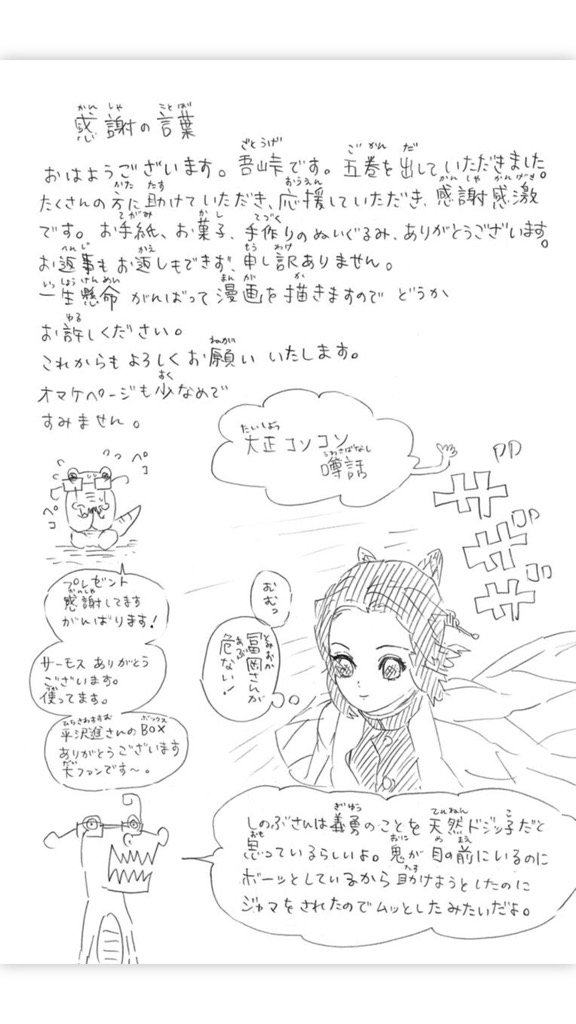 感謝の言葉
おはようございます。吾峠です。五巻を出していただきました。
たくさんの方に助けていただき、応援していただき、感謝感激
です。お手紙、お菓子、手作りのぬいぐるみ、ありがとうございます。
お返事もお返しもできず、申し訳ありません。
一生懸命がんばって漫画を描きますのでどうか
お許しください。
これからもよろしくお願いいたします。
オマケページも少なめで
すみません。
大正コソコソ
噂話
ペコ
ペコ
プレゼント
感謝してます
がんばります!
サーモスありがとう
ございます。
使ってます。
平沢進さんのBOX
ありがとうございます
大ファンです〜。
おむっ
冨岡さんが
危ない!
しのぶさんは義勇のことを天然ドジッ子だと
思っているらしいよ。鬼が目の前にいるのに
ボーッとしているから助けようとしたのに
ジャマをされたのでムッとしたみたいだよ。